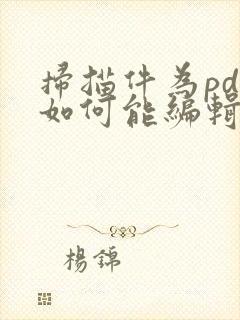 掃描件為pd
如何能編輯
楊錦